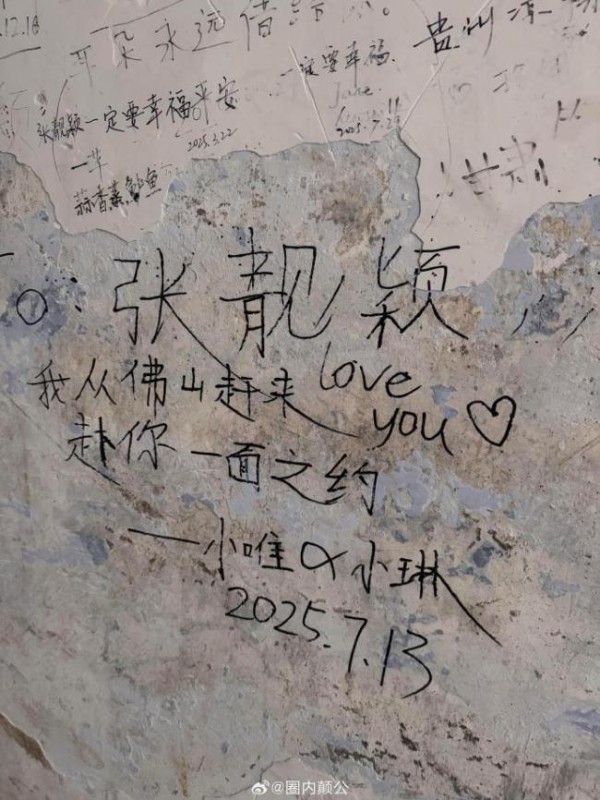 .12.18
耳朵永远借给
贵州
一定要幸福
张靓颖一定要幸福平安
Jane
2025.3.22
2025.7.2
一苇
蒜香熹鲈鱼
甘肃
To:张靓颖
我从佛山赶来 love
赴你一面之约 you♡
——小唯&小琳
2025.7.13
@圈内颠公